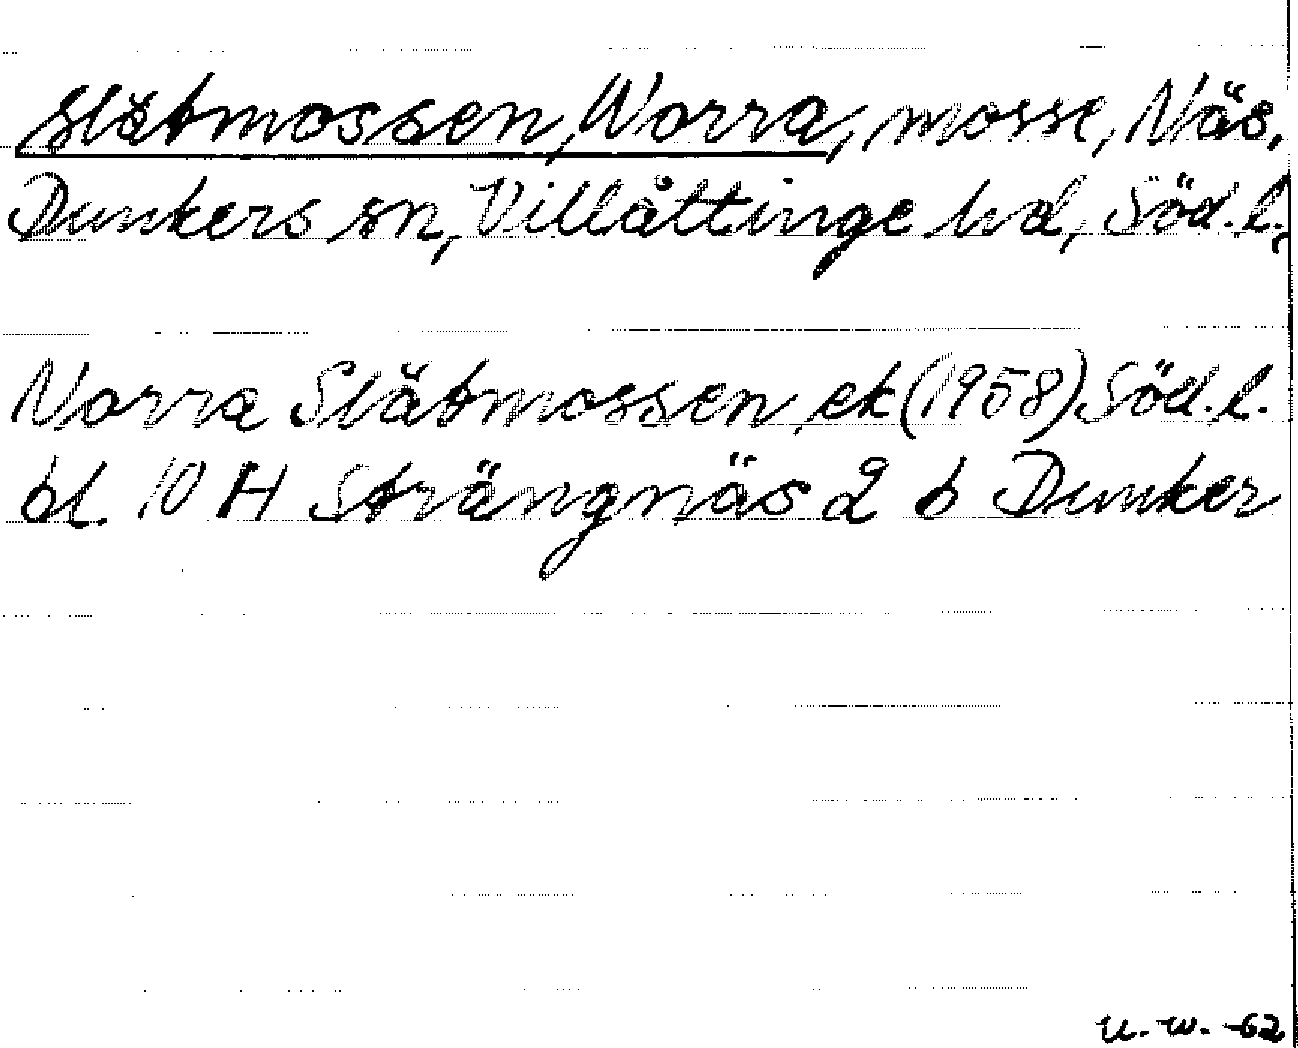 Slätmossen, Norra, mosse, Näs,
Dunkers sn, Villåttinge hd, Söd.l.,
Norra Slätmossen, ek (1958) Söd.l.
bl. 10 H Strängnäs 2 b Dunker
U. W. -62